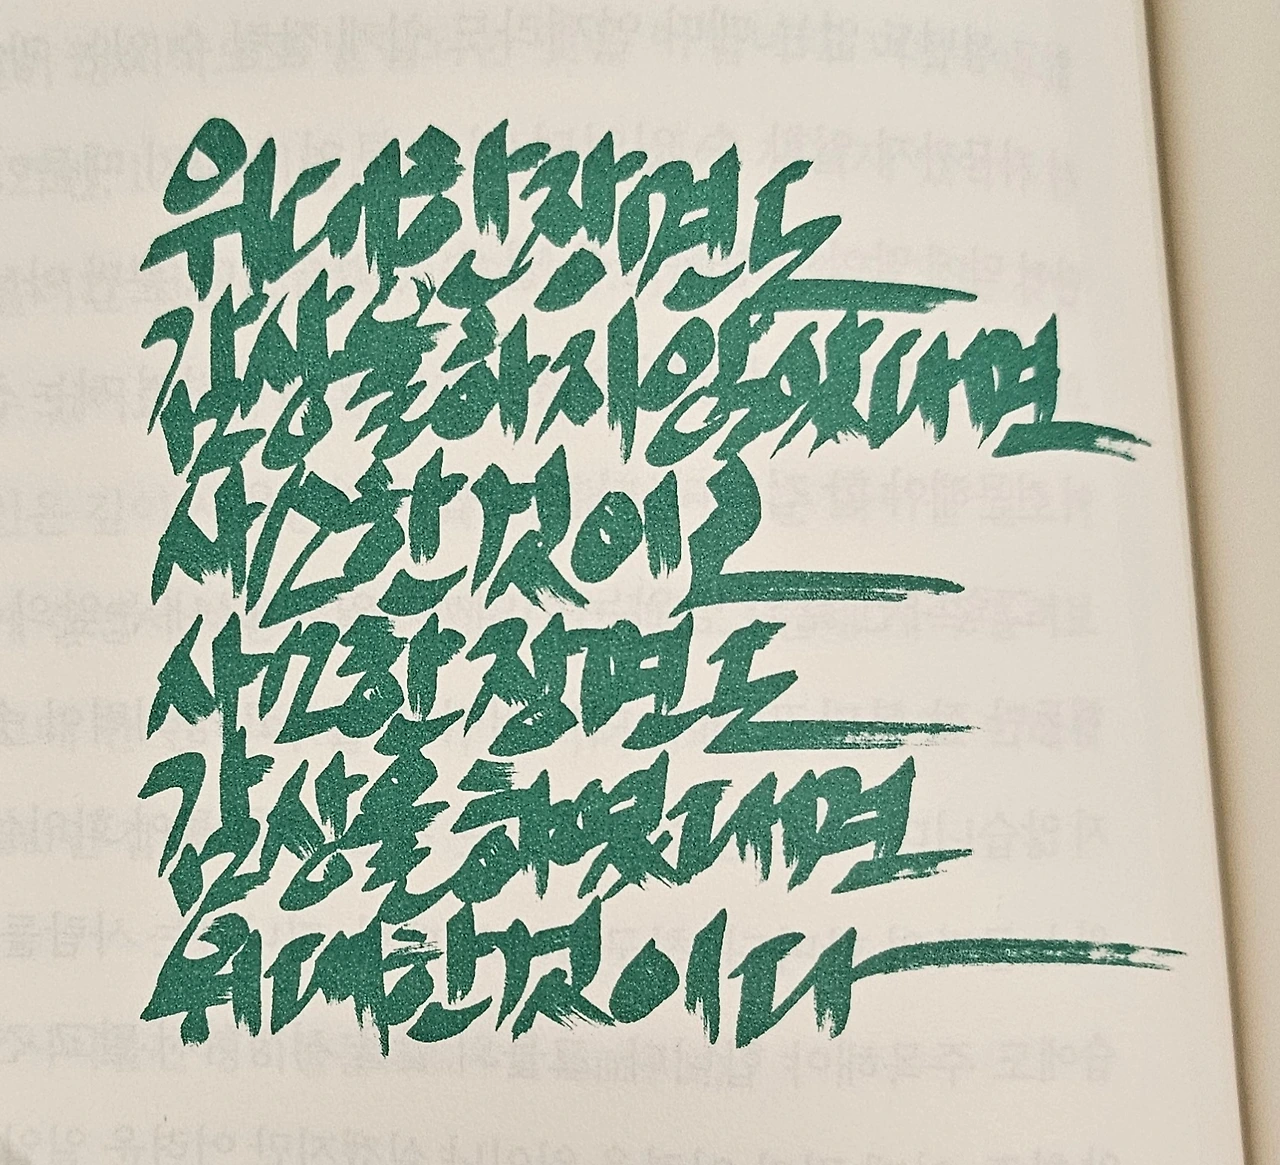 위대한 장면도
감상을 하지 않았다면
사소한 것이고
사소한 장면도
감상을 했다면
위대한 것이다